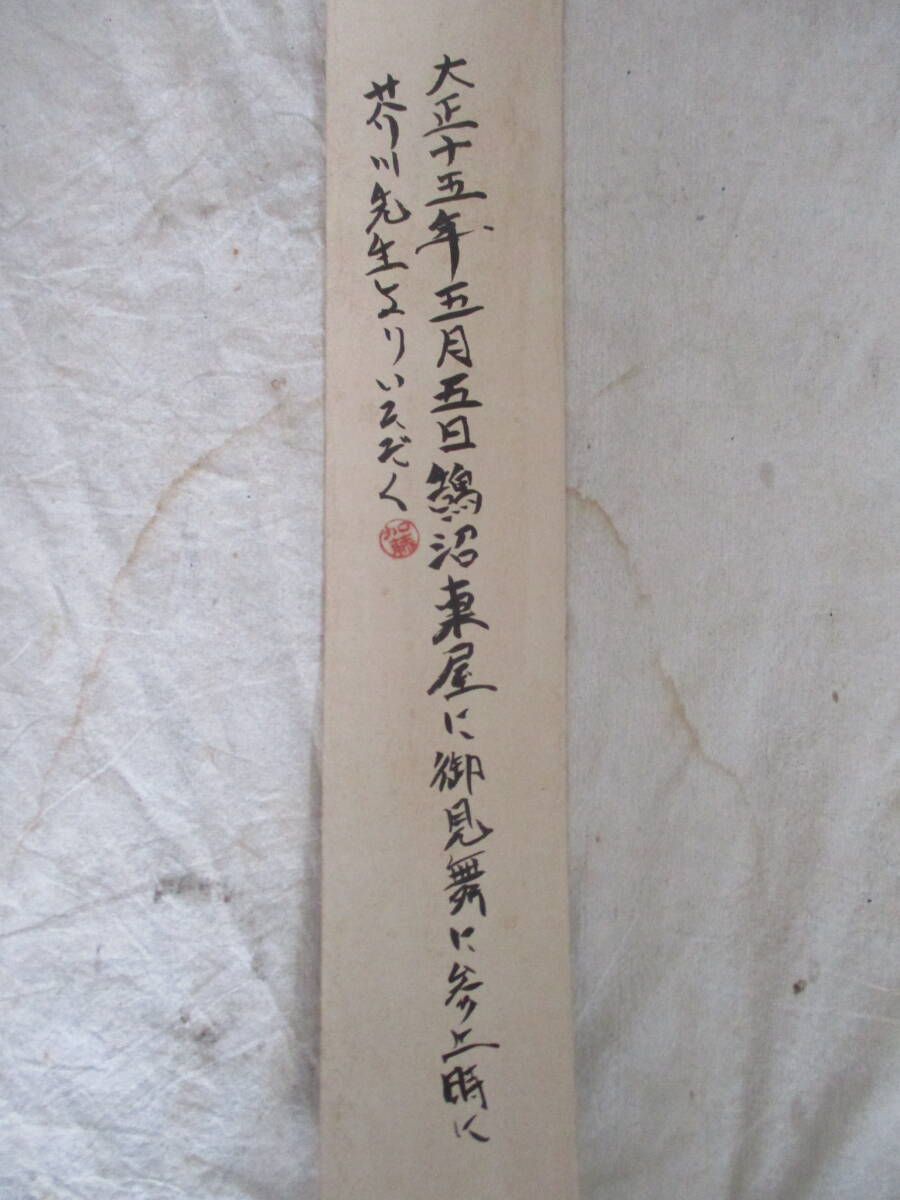 大正十五年五月五日鵠沼東屋に御見舞に参上時に
芥川先生よりいたゞく
加藤